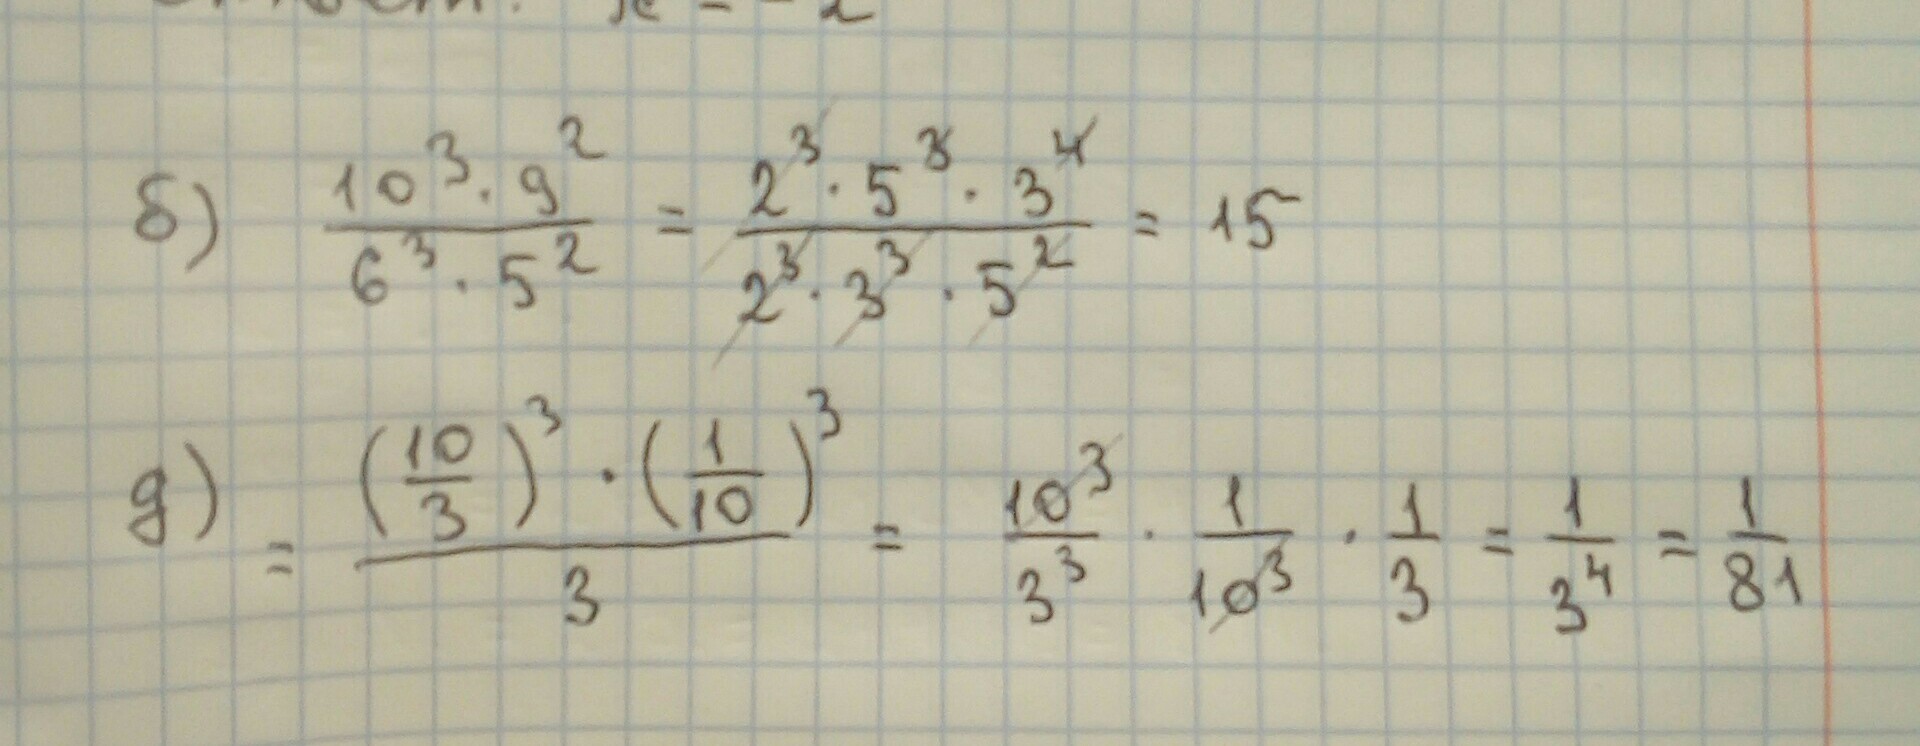 x = -2
б) 10³ · 9² / 6³ · 5² = 2³ · 5³ · 3⁴ / 2³ · 3³ · 5² = 15
д) = (10/3)³ · (1/10)³ / 3 = 10³/3³ · 1/10³ · 1/3 = 1/3⁴ = 1/81